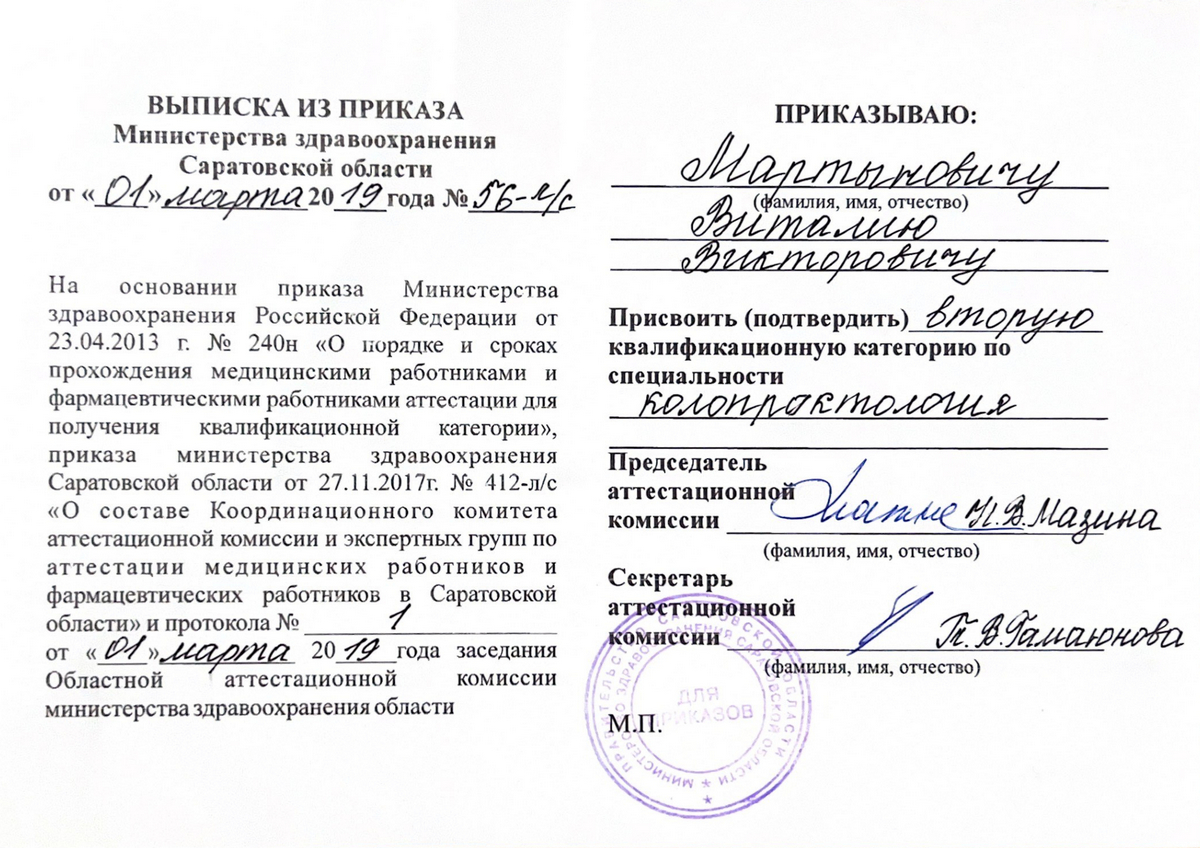 ВЫПИСКА ИЗ ПРИКАЗА
Министерства здравоохранения
Саратовской области
от «01» марта 2019 года № 56-л/с
На основании приказа Министерства
здравоохранения Российской Федерации от
23.04.2013 г. № 240н «О порядке и сроках
прохождения медицинскими работниками и
фармацевтическими работниками аттестации для
получения квалификационной категории»,
приказа министерства здравоохранения
Саратовской области от 27.11.2017г. № 412-л/с
«О составе Координационного комитета
аттестационной комиссии и экспертных групп по
аттестации медицинских работников и
фармацевтических работников в Саратовской
области» и протокола № 1
от «01» марта 2019 года заседания
Областной аттестационной комиссии
министерства здравоохранения области
ПРИКАЗЫВАЮ:
Мартыновичу
(фамилия, имя, отчество)
Виталию
Викторовичу
Присвоить (подтвердить) вторую
квалификационную категорию по
специальности
колопроктология
Председатель
аттестационной
комиссии Н.В.Мазина
(фамилия, имя, отчество)
Секретарь
аттестационной
комиссии Т.В.Гамаюнова
(фамилия, имя, отчество)
М.П.
ПРАВИТЕЛЬСТВО САРАТОВСКОЙ ОБЛАСТИ
МИНИСТЕРСТВО ЗДРАВООХРАНЕНИЯ САРАТОВСКОЙ ОБЛАСТИ
ДЛЯ
ПРИКАЗОВ